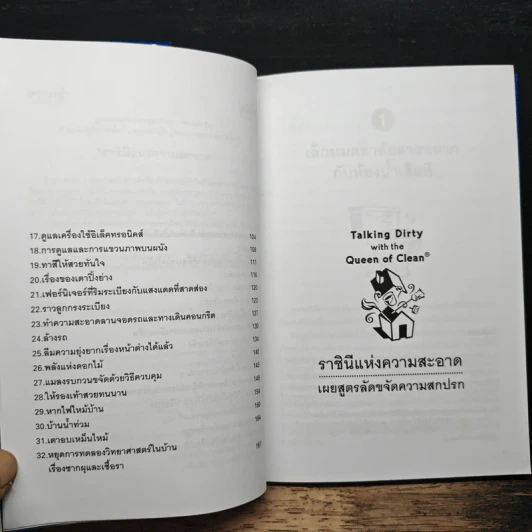 17.ดูแลเครื่องใช้อิเล็คทรอนิคส์ 104
18.การดูแลและการแขวนภาพบนผนัง 108
19.ทาสีให้สวยทันใจ 111
20.เรื่องของเตาปิ้งย่าง 118
21.เฟอร์นิเจอร์ที่ริมระเบียงกับแสงแดดที่สาดส่อง 120
22.ราวลูกกรงระเบียง 121
23.ทำความสะอาดลานจอดรถและทางเดินคอนกรีต 127
24.ล้างรถ
25.ลืมความยุ่งยากเรื่องหน้าต่างได้แล้ว
26.พลังแห่งดอกไม้
27.แมลงรบกวนขจัดด้วยวิธีควบคุม
28.ให้รองเท้าสวยทนนาน
29.หากไฟไหม้บ้าน
30.บ้านน้ำท่วม
31.เตาอบเหม็นไหม้
32.หยุดการทดลองวิทยาศาสตร์ในบ้าน
เรื่องซากผุและเชื้อรา
1
Talking Dirty
with the
Queen of Clean®
ราชินีแห่งความสะอาด
เผยสูตรลัดขจัดความสกปรก